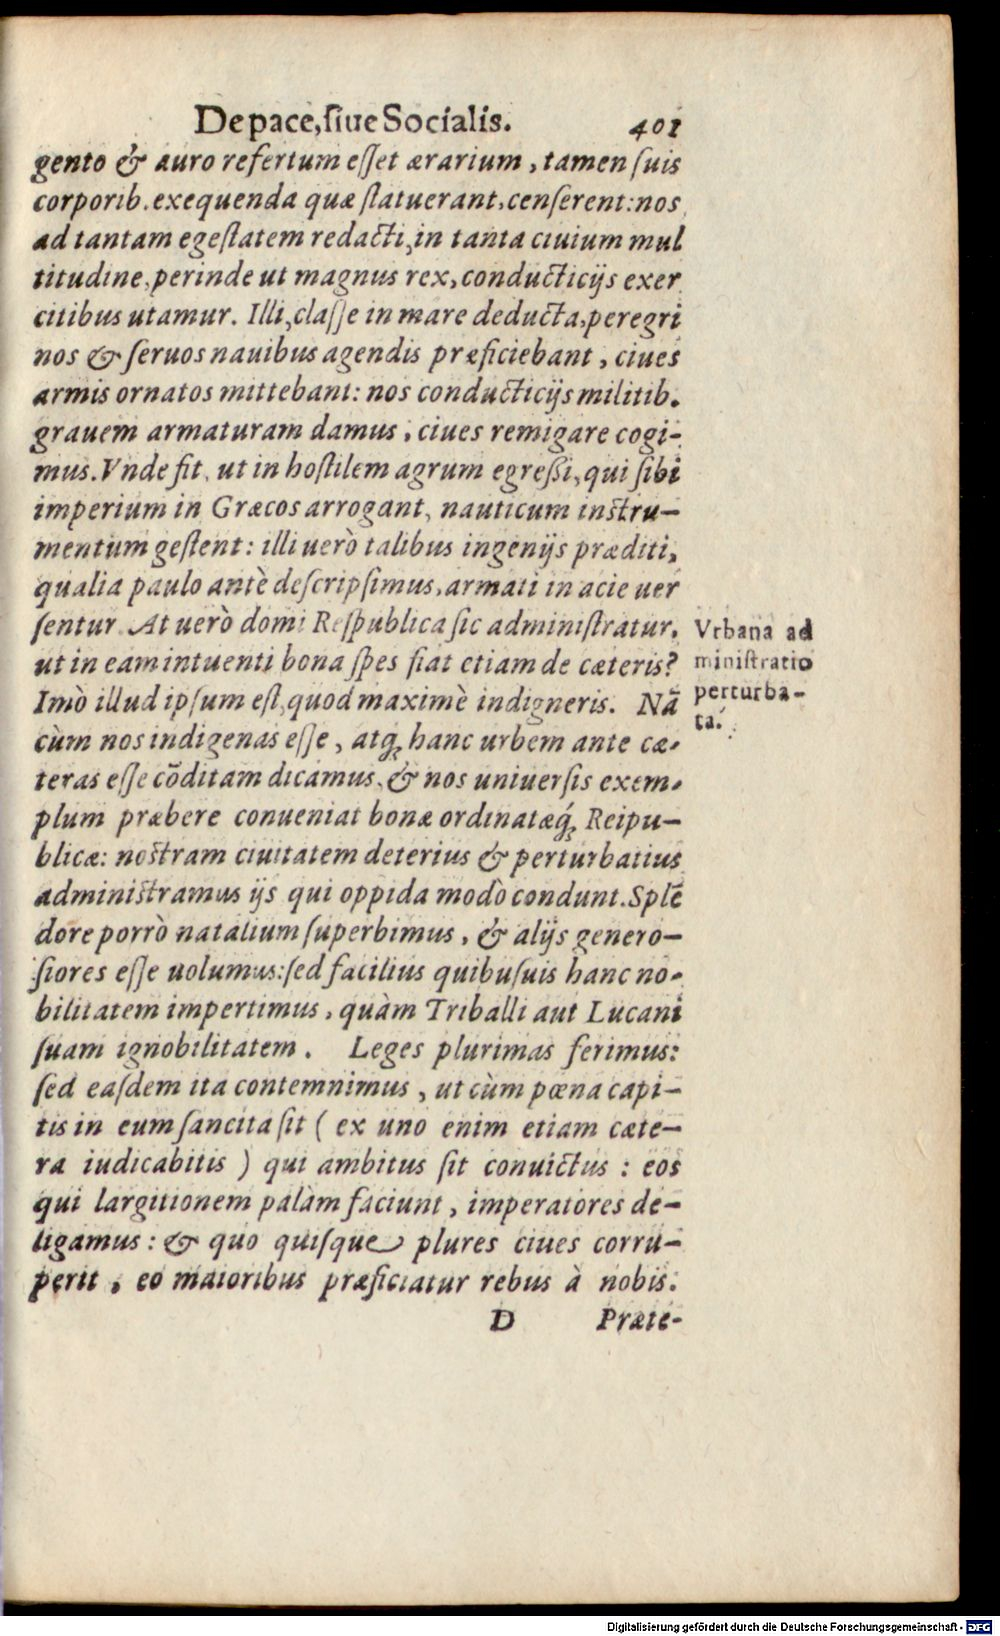 De pace, ſiue Socialis. 401
gento & auro refertum eſſet ærarium, tamen ſuis
corporib. exequenda quæ ſtatuerant, cenſerent: nos
ad tantam egeſtatem redacti, in tanta ciuium mul
titudine, perinde ut magnus rex, conducticijs exer
citibus utamur. Illi, claſſe in mare deducta, peregri
nos & ſeruos nauibus agendis præficiebant, ciues
armis ornatos mittebant: nos conducticijs militib.
grauem armaturam damus, ciues remigare cogi-
mus. Vnde fit, ut in hoſtilem agrum egreßi, qui ſibi
imperium in Græcos arrogant, nauticum inſtru-
mentum geſtent: illi uerò talibus ingenijs præditi,
qualia paulo antè deſcripſimus, armati in acie uer
ſentur. At uerò domi Reſpublica ſic adminiſtratur,
ut in eam intuenti bona ſpes fiat etiam de cæteris?
Imò illud ipſum eſt, quod maximè indigneris. Nā
cùm nos indigenas eſſe, atq; hanc urbem ante cæ-
teras eſſe cōditam dicamus, & nos uniuerſis exem-
plum præbere conueniat bonæ ordinatæq́; Reipu-
blicæ: noſtram ciuitatem deterius & perturbatius
adminiſtramus ijs qui oppida modò condunt. Splē
dore porrò natalium ſuperbimus, & alijs genero-
ſiores eſſe uolumus: ſed facilius quibuſuis hanc no-
bilitatem impertimus, quàm Triballi aut Lucani
ſuam ignobilitatem. Leges plurimas ferimus:
ſed eaſdem ita contemnimus, ut cùm pœna capi-
tis in eum ſancita ſit ( ex uno enim etiam cæte-
ra iudicabitis ) qui ambitus ſit conuictus : eos
qui largitionem palàm faciunt, imperatores de-
ligamus : & quo quiſque plures ciues corru-
perit, eo maioribus præficiatur rebus à nobis.
D Præte-
Vrbana ad
miniſtratio
perturba-
ta.
Digitalisierung gefördert durch die Deutsche Forschungsgemeinschaft - DFG